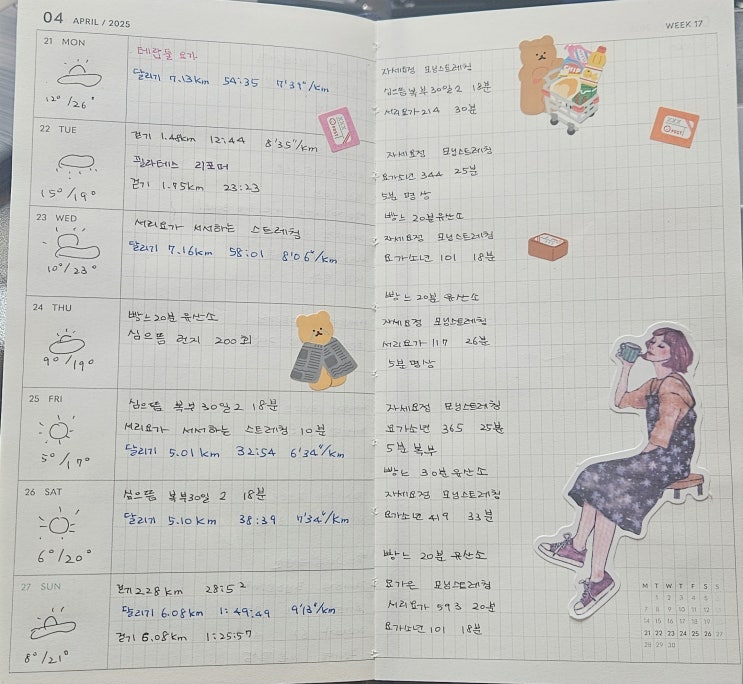 04 APRIL / 2025
21 MON
12° / 26°
테랍들 요가
달리기 7.13km 54:35 7'37"/km
22 TUE
15° / 19°
걷기 1.48km 12:44 8'35"/km
필라테스 리포머
걷기 1.75km 23:23
23 WED
10° / 23°
서리요가 서서하는 스트레칭
달리기 7.16km 58:01 8'06"/km
24 THU
9° / 19°
빵느 20분 유산소
심으뜸 런지 200회
25 FRI
5° / 17°
심으뜸 복부 30일 2 18분
서리요가 서서하는 스트레칭 10분
달리기 5.01 km 32:54 6'34"/km
26 SAT
6° / 20°
심으뜸 복부30일 2 18분
달리기 5.10 km 38:39 7'34"/km
27 SUN
8° / 21°
걷기 2.28 km 28:52
달리기 6.08km 1:49:49 9'13"/km
걷기 6.08km 1:25:57
WEEK 17
자세요정 모닝스트레칭
심으뜸 복부 30일 2 18분
서리요가 214 30분
자세요정 모닝스트레칭
요가소년 344 25분
5분 명상
빵느 20분 유산소
자세요정 모닝스트레칭
요가소년 101 18분
빵느 20분 유산소
자세요정 모닝스트레칭
서리요가 117 26분
5분명상
자세요정 모닝스트레칭
요가소년 365 25분
5분 복부
빵느 30분 유산소
자세요정 모닝스트레칭
요가소년 419 33분
빵느 20분 유산소
요가은 모닝스트레칭
서리요가 593 20분
요가소년 101 18분
M T W T F S S
1 2 3 4 5 6
7 8 9 10 11 12 13
14 15 16 17 18 19 20
21 22 23 24 25 26 27
28 29 30